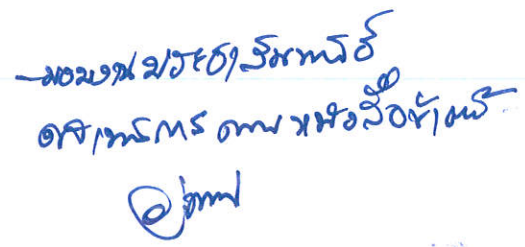 - มอบงานประชาสัมพันธ์
ดำเนินการ ตามหนังสือข้างต้น